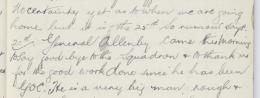 no certainty yet as to when we are going
home but it is the 25th so rumour says.
General Allenby came this morning
to say good-bye to the Squadron & to thank us
for the good work done since he has been
G.O.C. He is a very big man, rough &